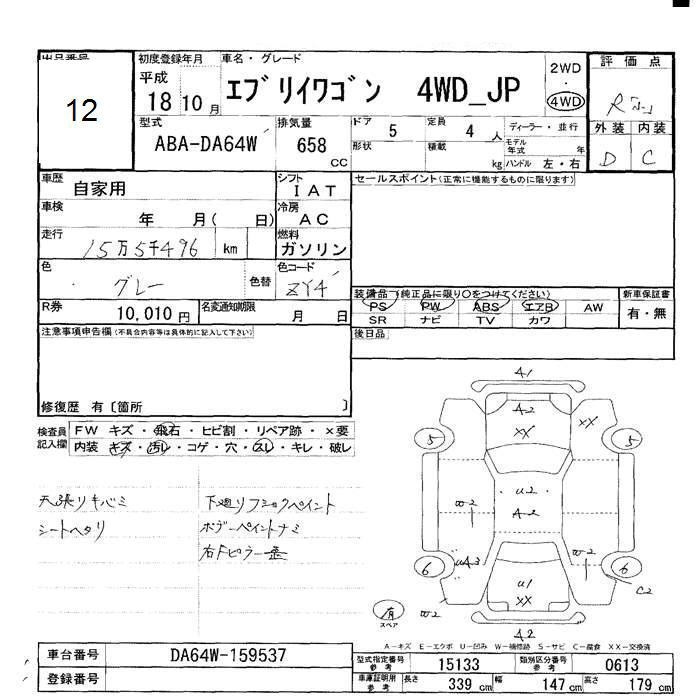 出品番号 初度登録年月 車名・グレード 評価点
12
平成 18 10 月
エブリイワゴン 4WD_JP
2WD
・
4WD
R
型式 排気量 ドア 定員 ディーラー・並行 外装 内装
ABA-DA64W 658 CC 5 4 人
形状 積載 kg モデル年式 年
ハンドル 左・右
D C
車歴 自家用 シフト IAT セールスポイント(正常に機能するものに限ります)
車検 年 月( 日) 冷房 AC
走行 15万5千496 km 燃料 ガソリン
色 グレー 色替 色コード ZY4
装備品(純正品に限り○をつけてください) 新車保証書
R券 10,010円 名変通知期限 月 日
PS PW ABS エアB AW 有・無
SR ナビ TV カワ
注意事項申告欄(不具合内容等は具体的に記入して下さい) 後日品
修復歴 有〔箇所 〕
検査員記入欄 FW キズ・飛石・ヒビ割・リペア跡・×要
内装・キズ・汚レ・コゲ・穴・スレ・キレ・破レ
天張リキバミ 下廻リフショクペイント
シートヘタリ ボデーペイントナミ
右Fピラー歪
A1
A2
XX
XX
5
5
U2
A2
W2
UA3
W2
6
6
C2
U1
XX
有
スペア
W2
A2
A-キズ E-エクボ U-凹み W-補修跡 S-サビ C-腐食 XX-交換済
車台番号 DA64W-159537 型式指定番号 参考 15133 類別区分番号 参考 0613
登録番号 車庫証明用 参考 長さ 339 cm 幅 147 cm 高さ 179 cm